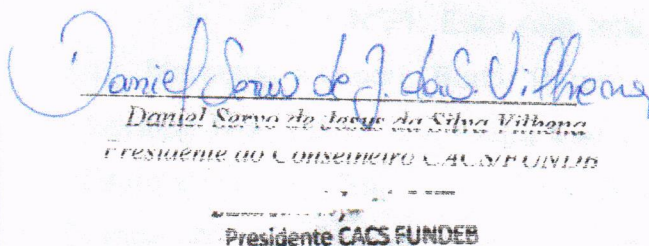 Daniel Servo de J. da S. Vilhena
Daniel Servo de Jesus da Silva Vilhena
Presidente do Conselheiro CACS/FUNDB
Presidente CACS FUNDEB